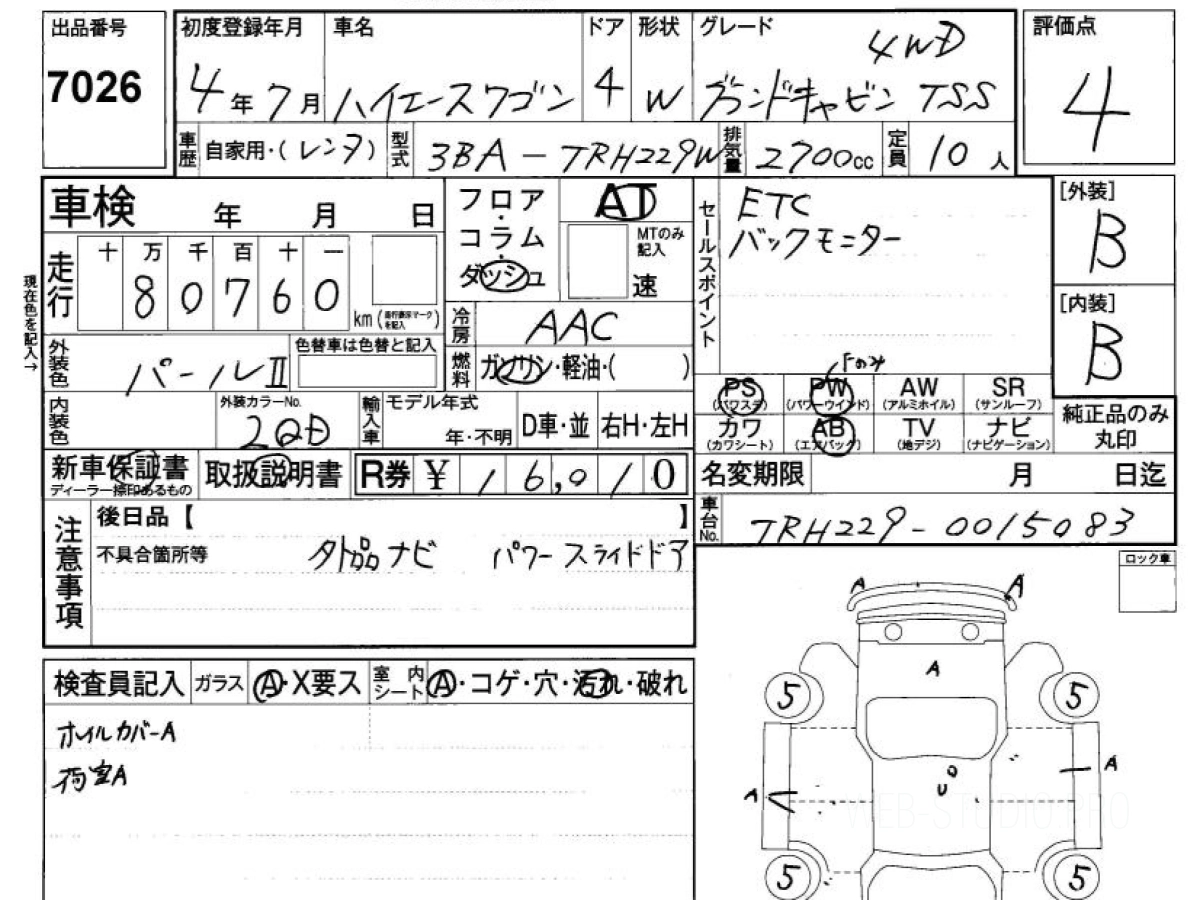 出品番号
7026
初度登録年月
4年7月
車名
ハイエースワゴン
ドア
4
形状
W
グレード
4WD
グランドキャビン TSS
評価点
4
車歴
自家用・(レンタ)
型式
3BA-TRH229W
排気量
2700cc
定員
10人
車検 年 月 日
フロア・コラム・ダッシュ
AT
MTのみ記入
速
セールスポイント
ETC
バックモニター
[外装]
B
[内装]
B
現在色を記入→
走行
十 万 千 百 十 一
8 0 7 6 0
km(走行表示マークを記入)
冷房
AAC
燃料
ガソリン・軽油・( )
外装色
パールⅡ
色替車は色替と記入
Fのみ
PS
(パワステ)
PW
(パワーウインド)
AW
(アルミホイル)
SR
(サンルーフ)
カワ
(カワシート)
AB
(エアバッグ)
TV
(地デジ)
ナビ
(ナビゲーション)
純正品のみ丸印
内装色
外装カラーNo.
2QD
輸入車
モデル年式
年・不明
D車・並
右H・左H
新車保証書
ディーラー捺印あるもの
取扱説明書
R券 ¥ 16,010
名変期限 月 日迄
車台No.
TRH229-0015083
注意事項
後日品【 】
不具合箇所等
外品ナビ パワースライドドア
ロック車
検査員記入
ガラス
A・X要ス
室内シート
A・コゲ・穴・汚れ・破れ
ホイルカバーA
荷室A
A A
A
5 5
A A
5 5
WEB-STUDIO.PRO